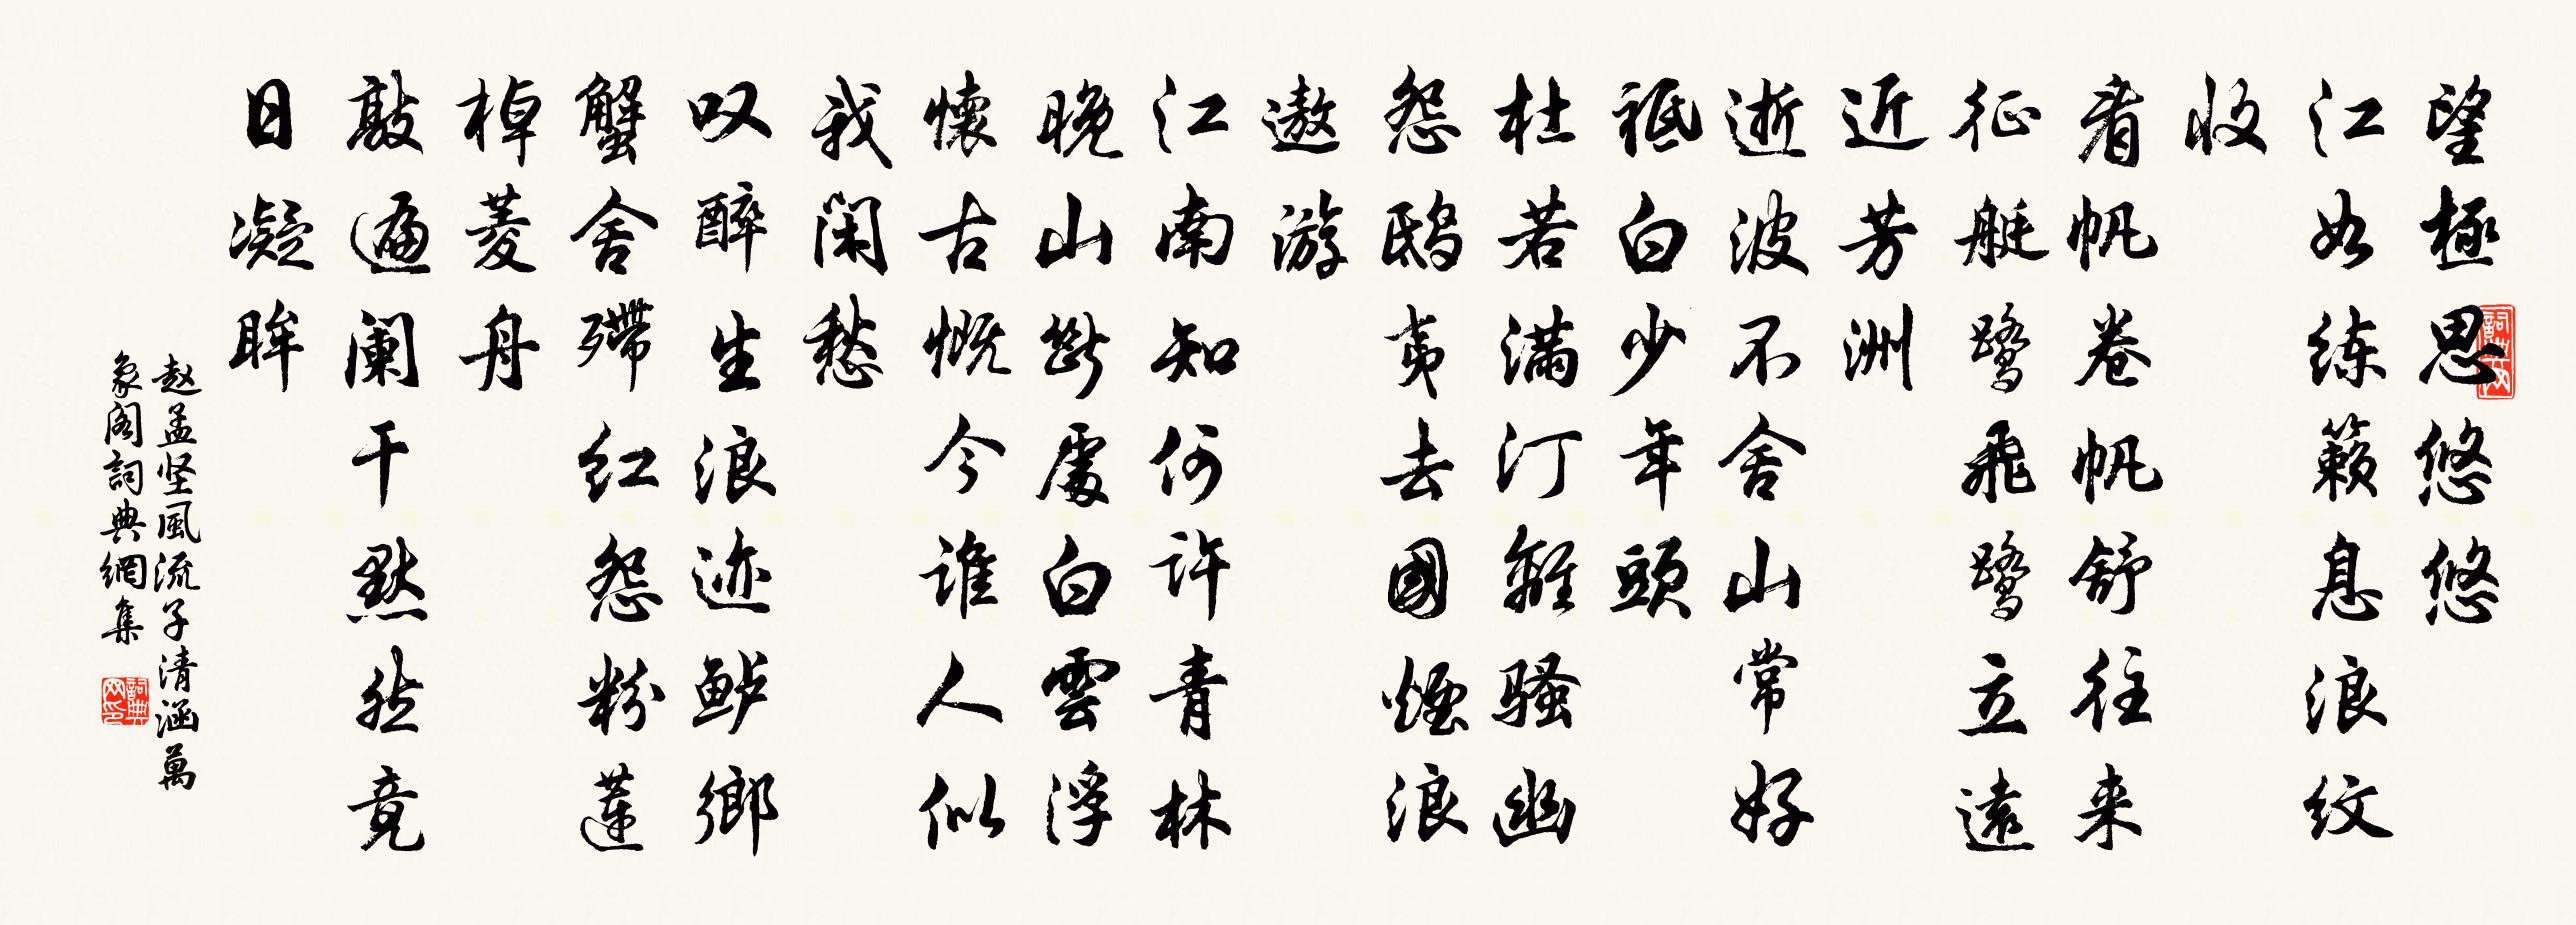 望極思悠悠
江如练籁息浪纹
收
看帆卷帆舒往来
征艇鹭飛鹭立遠
近芳洲
逝波不舍山常好
祗白少年頭
杜若满汀離騷幽
怨鸱夷去國煙浪
遨游
江南知何许青林
晚山断處白雲浮
懷古慨今谁人似
我闲愁
叹醉生浪迹鲈鄉
蟹舍殢红怨粉蓮
棹菱舟
敲遍阑干黙然竟
日凝眸
赵孟坚風流子清涵萬
象阁詞典網集